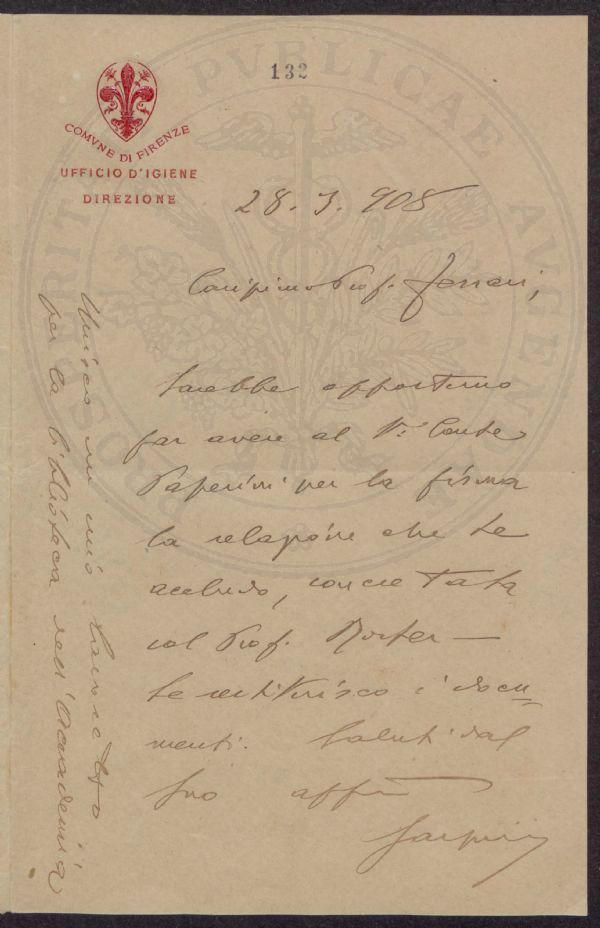 132
PROSPERITATI PVBLICAE AVGENDAE
COMVNE DI FIRENZE
UFFICIO D'IGIENE
DIREZIONE
28. 3. 908
Carissimo Prof.
Sarebbe opportuno
far avere al Sr. Conte
Paperini per la firma
la relazione che Le
accludo, concretata
col Prof.
Le restituisco i docu=
menti. Saluti dal
suo affmo
Unisco un mio lavoretto
per la biblioteca dell'Accademia